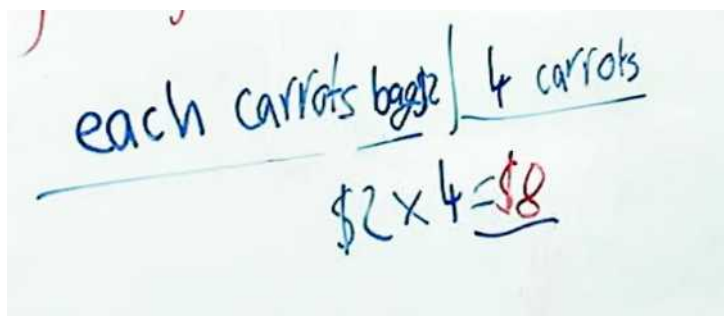 each carrots bag$2| 4 carrots
$2 × 4 = $8